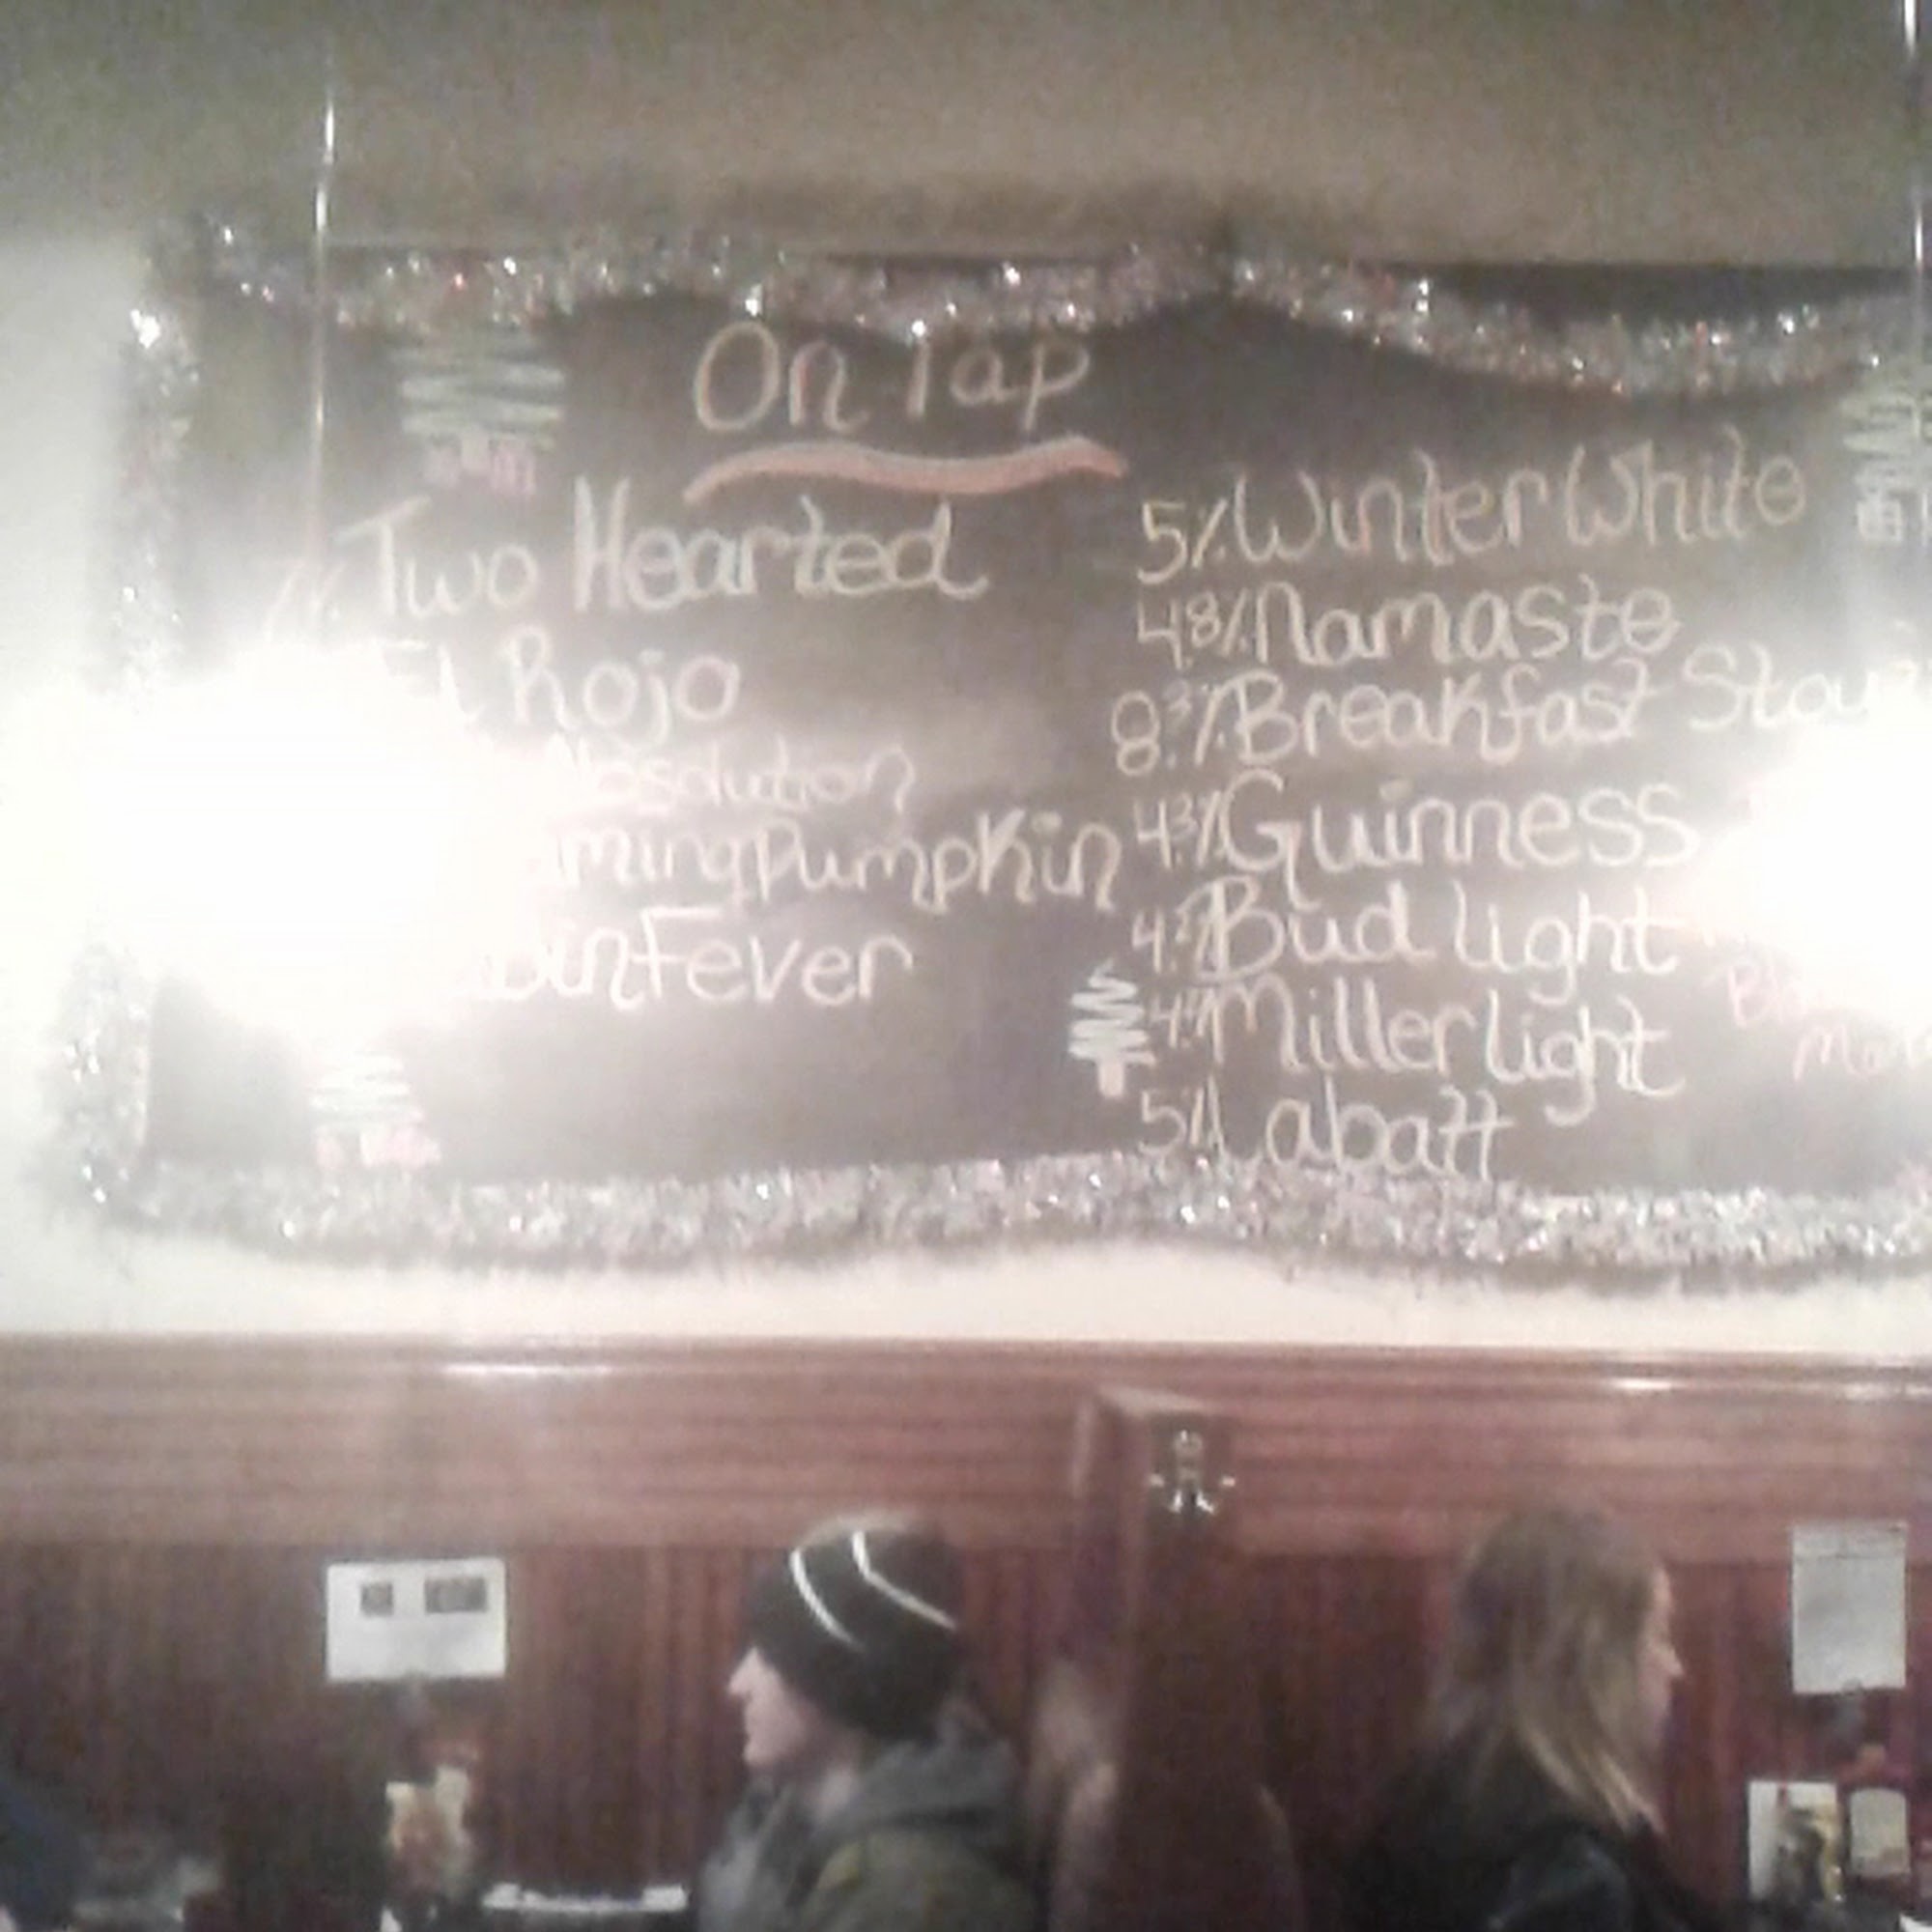 On Tap
Two Hearted
El Rojo
Absolution
Pumpkin
Fever
5% Winter White
4.8% Namaste
8.3% Breakfast Stout
4.3% Guinness
4.2% Bud Light
4.1% Miller Light
5% Labatt